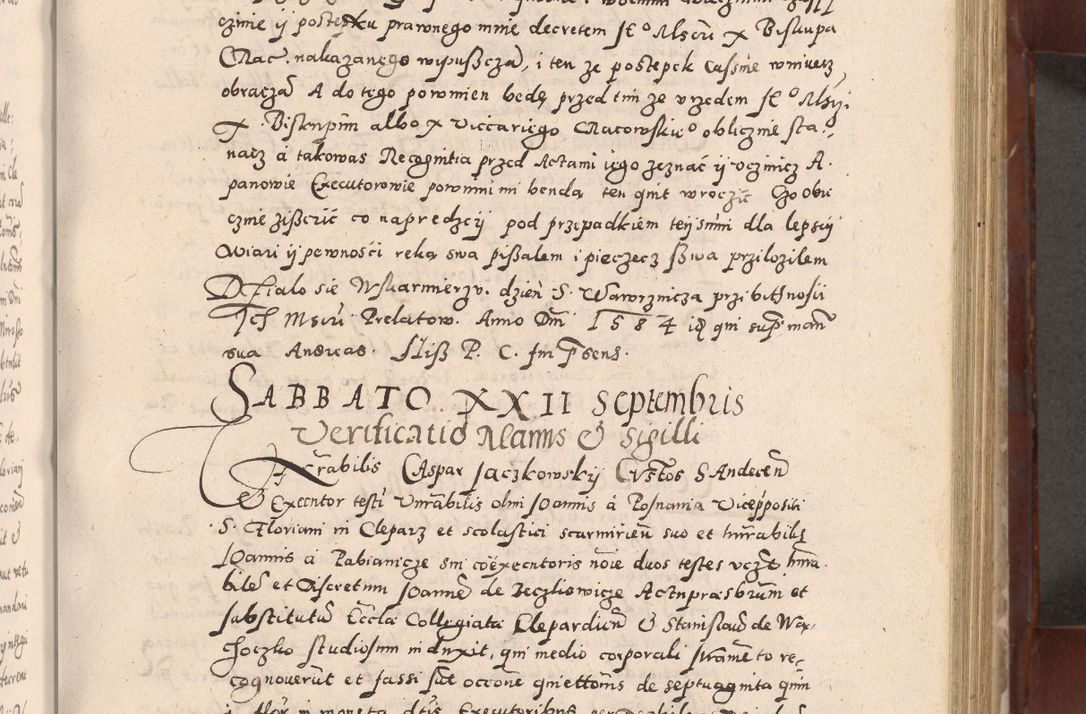 cznie ÿ postępku prawnego mnie decretem JE° Mscži X Biskupa
Crac. nakazanego wipusscza, i ten ze postepek cassuie wniwecz
obracza A do tego powinien bede przed tim ze vrzedem JE° Msči
X. Biskupim albo X viccariego Cracowskie° oblicznie sta-
nacz á takowas Recognitia przed Actami iego zeznać ÿ vczinicz A
panowie Executorowie powinni mi benda ten quit wroczić Czo obu
cznie zisscić co napredzcij pod przepadkiem teij summi dla lepscij
Wiari ÿ pewnosći reka swa pissalem i pieczecz sswa przilozilem
Dzialo sie W Skarmierzu. dzień S. Wawrznicza przi bitnosci
Ich Mscži Prelatow. Anno Dni 1584 idq qui supra manu
sua Andreas. Slisz P. C. Im ppsens.
SABBATO XXII Septembris
Verificatio Manus & Sigilli
Venerabilis Caspar Jaczkowskij Custos S Andreae
& Executor testi Venrabilis olim Joannis á Posnania Viceppositi
S. Floriani in Cleparz et scolastici scarmirien suo et honrabilis
Joannis á Pabianicze sui coexecutoris noie duos testes vczt honra-
biles et Discretum Joanne de Beczkowicze Actu praesbrum et
substitutu Eccla Collegiata Clepardien & Stanislau de Wa-
choczko studiosum induxit, qui medio corporali Jurameto re-
cognoverut et fassi sut occone quiettonis de septuaginta quin